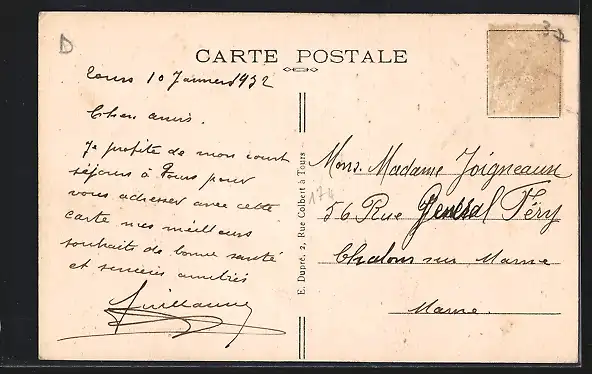 D
37
CARTE POSTALE
Tours 10 Janvier 1932
Chers amis.
Je profite de mon court
séjour à Tours pour
vous adresser avec cette
carte mes meilleurs
souhaits de bonne santé
et sincères amitiés
Guillaume
E. Dupré, 2, Rue Colbert à Tours
174
Mons. Madame Joigneaux
56 Rue Général Féry
Chalons sur Marne
Marne.